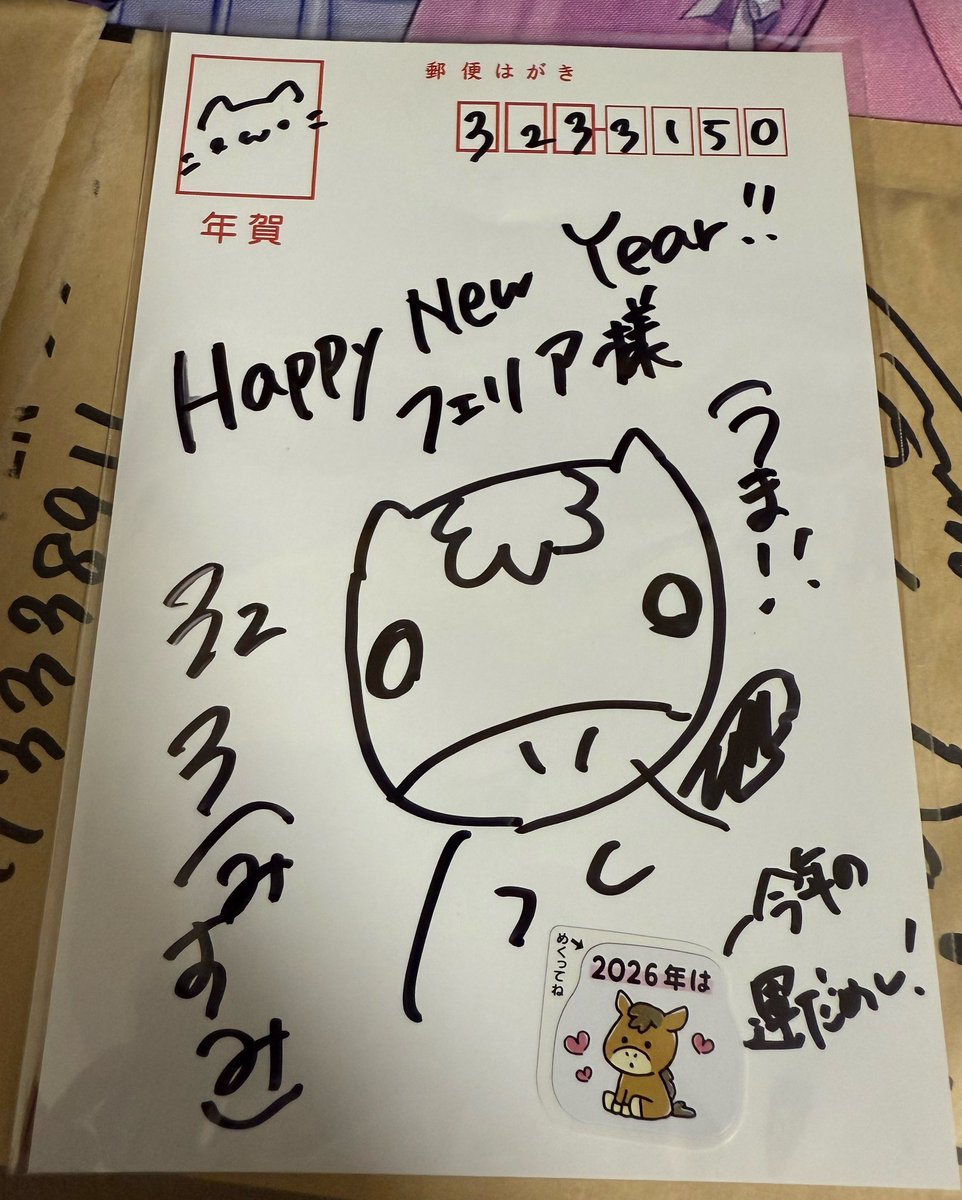 郵便はがき
323-3150
年賀
Happy New Year!!
フェリア様
(うま!!
323
(みすみ)
今年の
運だめし!
めくってね
2026年は